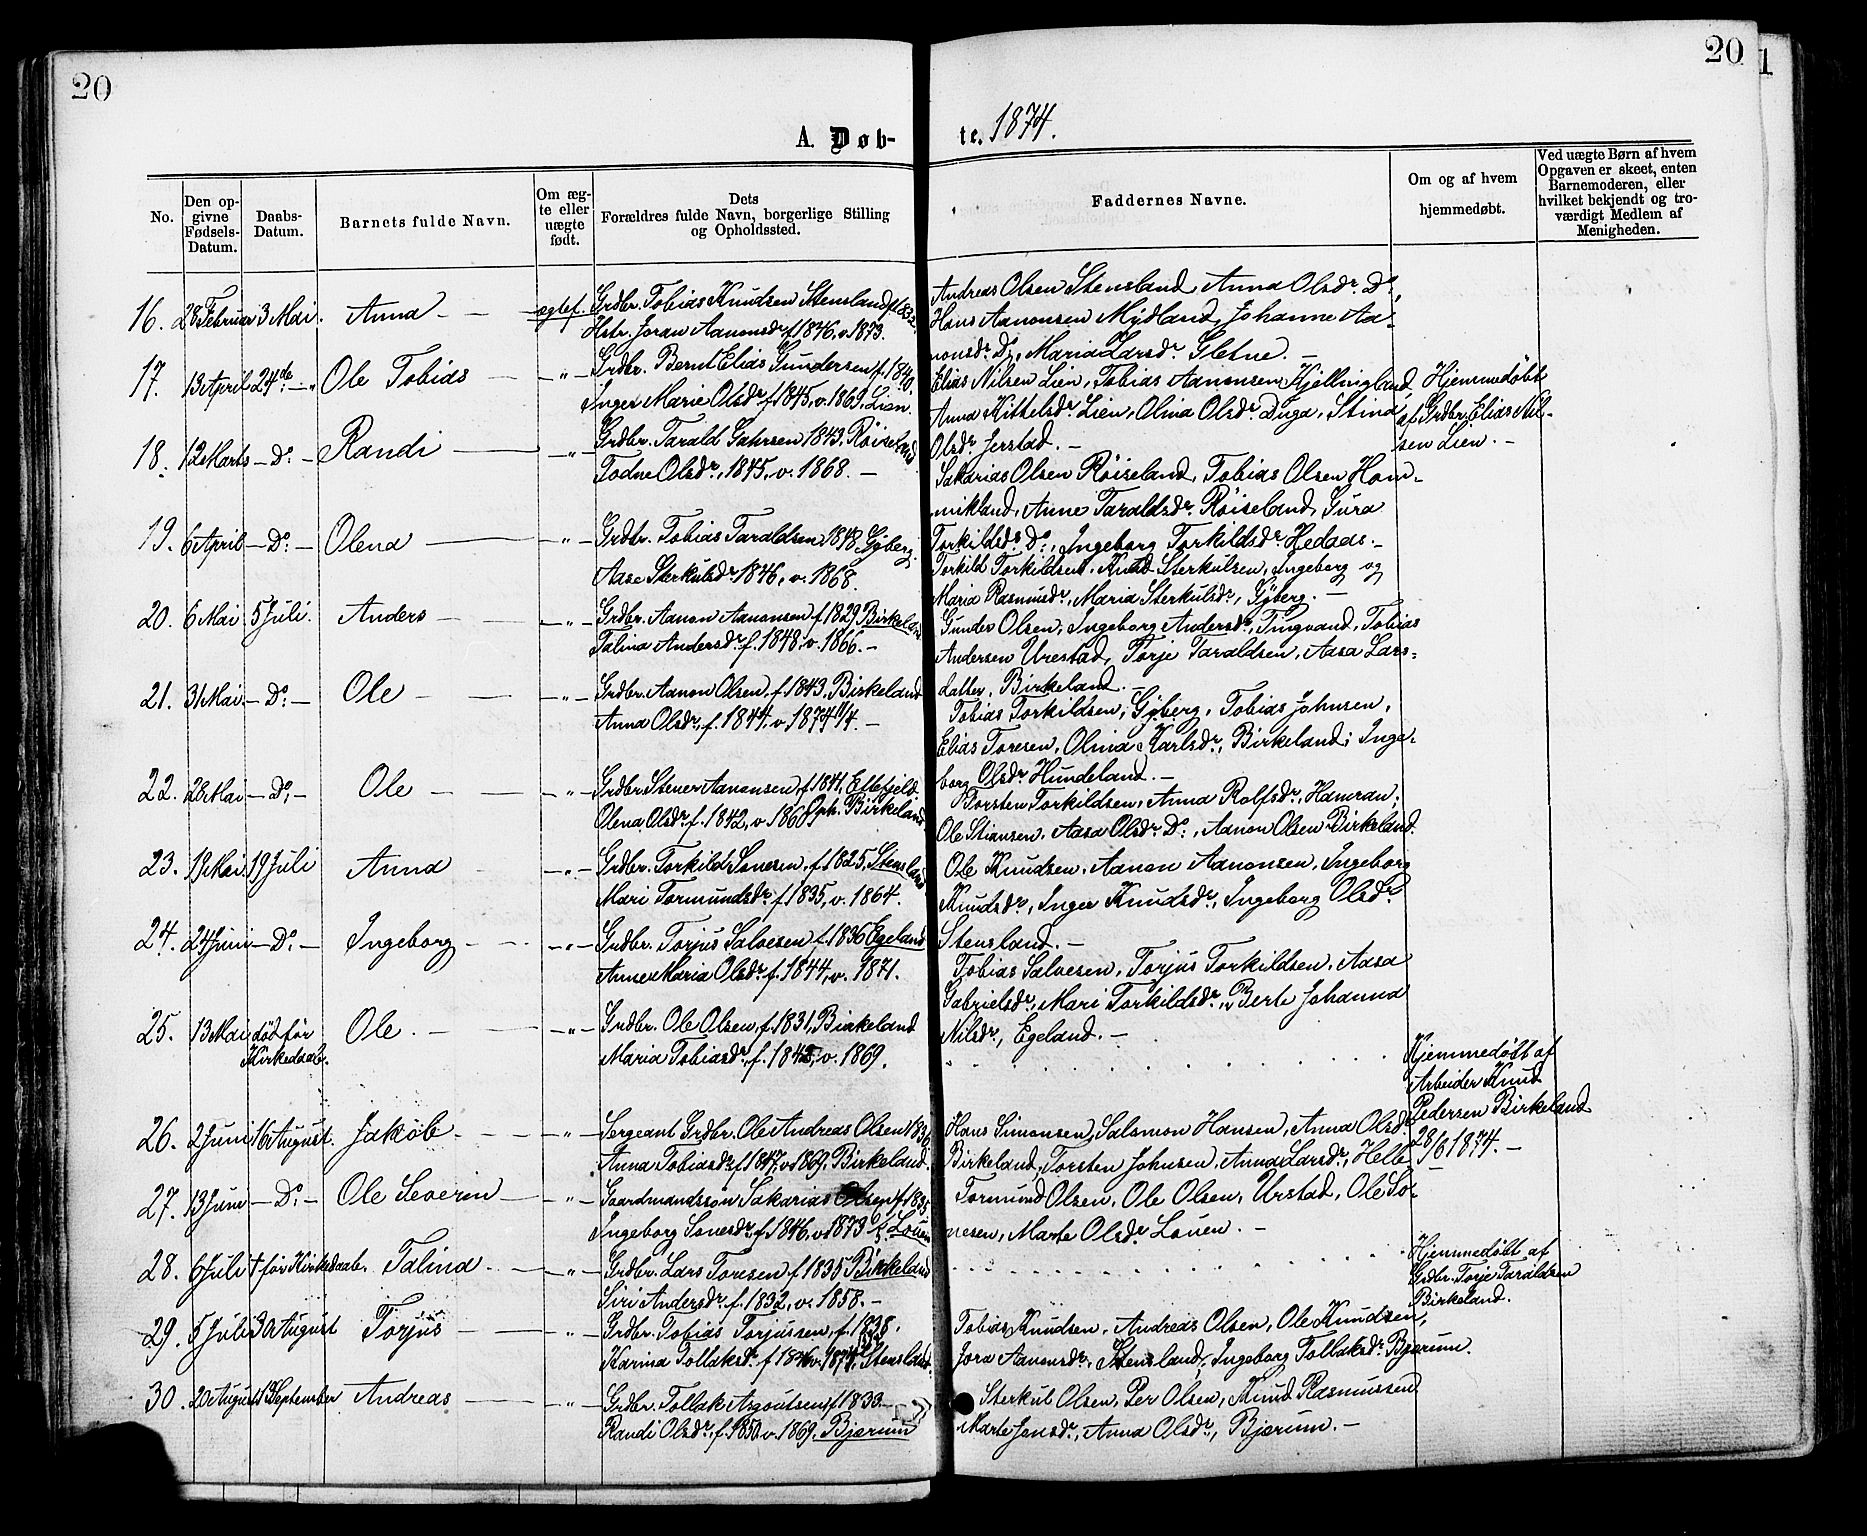 20
20
1
A. Døb-
te. 1874.
No.
Den op-
givne
Fødsels-
Datum.
Daabs-
Datum.
Barnets fulde Navn.
Om æg-
te eller
uægte
født.
Dets
Forældres fulde Navn, borgerlige Stilling
og Opholdssted.
Faddernes Navne.
Om og af hvem
hjemmedøbt.
Ved uægte Børn af hvem
Opgaven er skeet, enten
Barnemoderen, eller
hvilket bekjendt og tro-
værdigt Medlem af
Menigheden.
16. 28 Februar 3 Mai. Anna - - ægtef. Grdbr. Tobias Knudsen Stensland f. 1832.
Hstr. Joran Aanonsdr. f. 1846, v. 1873.
Andreas Olsen Stensland, Anna Olsdr. Do,
Hans Aanonsen Mydland, Johanne Aa-
nonsdr. Do, Maria Larsdr. Sletne. -
17. 13 April 24de - " Ole Tobias - - " - Grdbr. Bernt Elias Gundersen f. 1840,
Inger Marie Olsdr. f. 1845, v. 1869, Lien.
Elias Nilsen Lien, Tobias Aanonsen Kjellingland,
Anna Kittelsdr. Lien, Olina Olsdr. Duga, Stina
Olsdr. Jerstad. -
Hjemmedøbt
af Grdbr. Elias Nil-
sen Lien. -
18. 12 Marts - Do - Randi - - " - Grdbr. Tarald 1843, Røiseland
Todne Olsdr., 1845, v. 1868. -
Sakarias Olsen Røiseland, Tobias Olsen Hom-
mikland, Anne Taraldsdr. Røiseland, Gura
Torkildsdr. Do, Ingeborg Torkildsdr. Hedaas. -
19. 6 April - Do - Olena - - " - Grdbr. Tobias Taraldsen 1848 Gyberg.
Aase Sterkulsdr. 1846, v. 1868.
Torkild Torkildsen, Knud Sterkulsen, Ingeberg og
Maria Rasmusdr., Maria Sterkulsdr., Gyberg. -
20. 6 Mai 5 Juli. Anders - - " - Grdbr. Aanon Aanonsen f. 1829 Birkeland
Talina Andersdr. f. 1848, v. 1866. -
Gunder Olsen, Ingeborg Andersdr., Tingvand, Tobias
Andersen Urestad, Torje Taraldsen, Aasa Lars-
datter, Birkeland. -
21. 31 Mai - Do - Ole - - " - Grdbr. Aanon Olsen f. 1843, Birkeland
Anna Olsdr., f. 1844, v. 1874 -
Tobias Torkildsen, Gyberg, Tobias Johnsen,
Elias Toresen, Olina Karlsdr., Birkeland; Inge-
borg Olsdr. Hundeland. -
22. 28 Mai - Do - Ole - - " - Grdbr Stener Aanonsen f. 1841, Eftefjeld
Olena Olsdr. f. 1842, v. 1868 Oph. Birkeland.
Torsten Torkildsen, Anna Rolfsdr., Hamran;
Ole Stiansen, Aasa Olsdr. Do:, Aanon Olsen Birkeland.
23. 19 Juli Anna - " - Grdbr. Torkild Sonesen, f. 1825, Stensland
Mari Tormundsdr. f. 1835, v. 1864.
Ole Knudsen, Aanon Aanonsen, Ingeborg
Knudsdr., Inger Knudsdr., Ingeborg Olsdr.
Stensland. -
24. 24 Juni - Do - Ingeborg - - " - Grdbr. Torjus Salvesen f. 1836 Egeland
Anne Maria Olsdr. f. 1844, v. 1871.
Tobias Salvesen, Torjus Torkildsen, Aasa
Gabrielsdr., Mari Torkildsdr., Berte Johanna
Nilsdr., Egeland. -
25. 13 Mai død før
Kirkedaab. Ole. - - " - Grdbr. Ole Olsen, f. 1831, Birkeland
Maria Tobiasdr. f. 1845, v. 1869.
Hjemmedøbt af
Arbeider Knud
Pedersen Birkeland
28/6 1874. -
26. 2 Juni 16 August. Jakob - - " - Sergeant Grdbr. Ole Andreas Olsen 1836
Anna Tobiasdr. f. 1847, v. 1869, Birkeland.
Hans Simonsen, Salomon Hansen, Anna Olsdr.
Birkeland, Torsten Johnsen, Anna Larsdr., Helle
27. 13 Juni - Do - Ole Severin - - " - Gaardmandssøn Sakarias Olsen f. 1835,
Ingeborg Sonesdr. f. 1846, v. 1873 Louen
Tormund Olsen, Ole Olsen, Urstad, Ole So-
nesen, Marte Olsdr. Louen. -
28. 6 Juli † før Kirkedaab. Talina - - " - Grdbr. Lars Toresen f. 1835 Birkeland
Siri Andersdr. f. 1832, v. 1858. -
Hjemmedøbt af
Grdbr. Torje Taraldsen
Birkeland.
29. 5 Juli 30 August Torjus - - " - Grdbr. Tobias Torjussen, f. 1838,
Karina Tollaksdr. f. 1846 v. 1874, Stensland.
Tobias Knudsen, Andreas Olsen, Ole Knudsen,
Jora Aanonsdr., Stensland, Ingeborg Tollaksdr. Bjærum.
30. 20 August September Andreas - - " - Grdbr. Tollak Asgoutsen, f. 1833. -
Randi Olsdr., f. 1850, v. 1869, Bjærum
Sterkul Olsen, Per Olsen, Knud Rasmussen
Marte Jensdr., Anna Olsdr., Bjærum. -